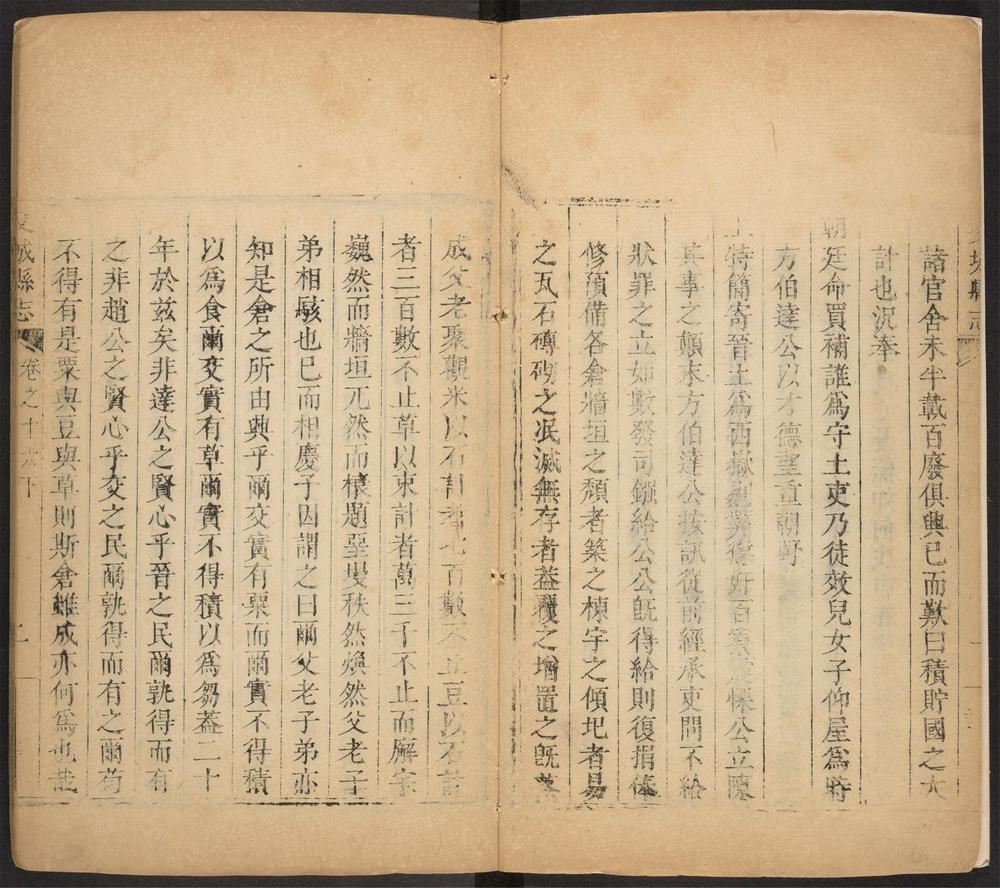 縣志
諸官舍未半載百廢俱興已而歎曰積貯國之大
計也況奉
朝廷命買補誰爲守土吏乃徒效兒女子仰屋爲時
方伯達公以才德望重朝野
特簡寄晉土爲西嶽 公立陳
其事之顛末方伯達公按訊從前經承吏問不給
狀罪之立如數發司鏹給公公旣得給則復捐俸
修預備各倉牆垣之頹者築之棟宇之傾圯者易
之瓦石磚砌之冺滅無存者葢覆之增置之旣落
成父老聚觀米以石計者七百數不止豆以石計
者三百數不止草以束計者萬三千不止而廨宇
巍然而牆垣兀然而榱題堊墁秩然煥然父老子
弟相駭也巳而相慶予因謂之曰爾父老子弟亦
知是倉之所由興乎爾交實有粟而爾實不得積
以爲食爾交實有草爾實不得積以爲芻葢二十
年於兹矣非達公之賢心乎晉之民爾孰得而有
之非趙公之賢心乎交之民爾孰得而有之爾苟
不得有是粟與豆與草則斯倉雖成亦何爲也哉
城縣志 卷之十六下 二